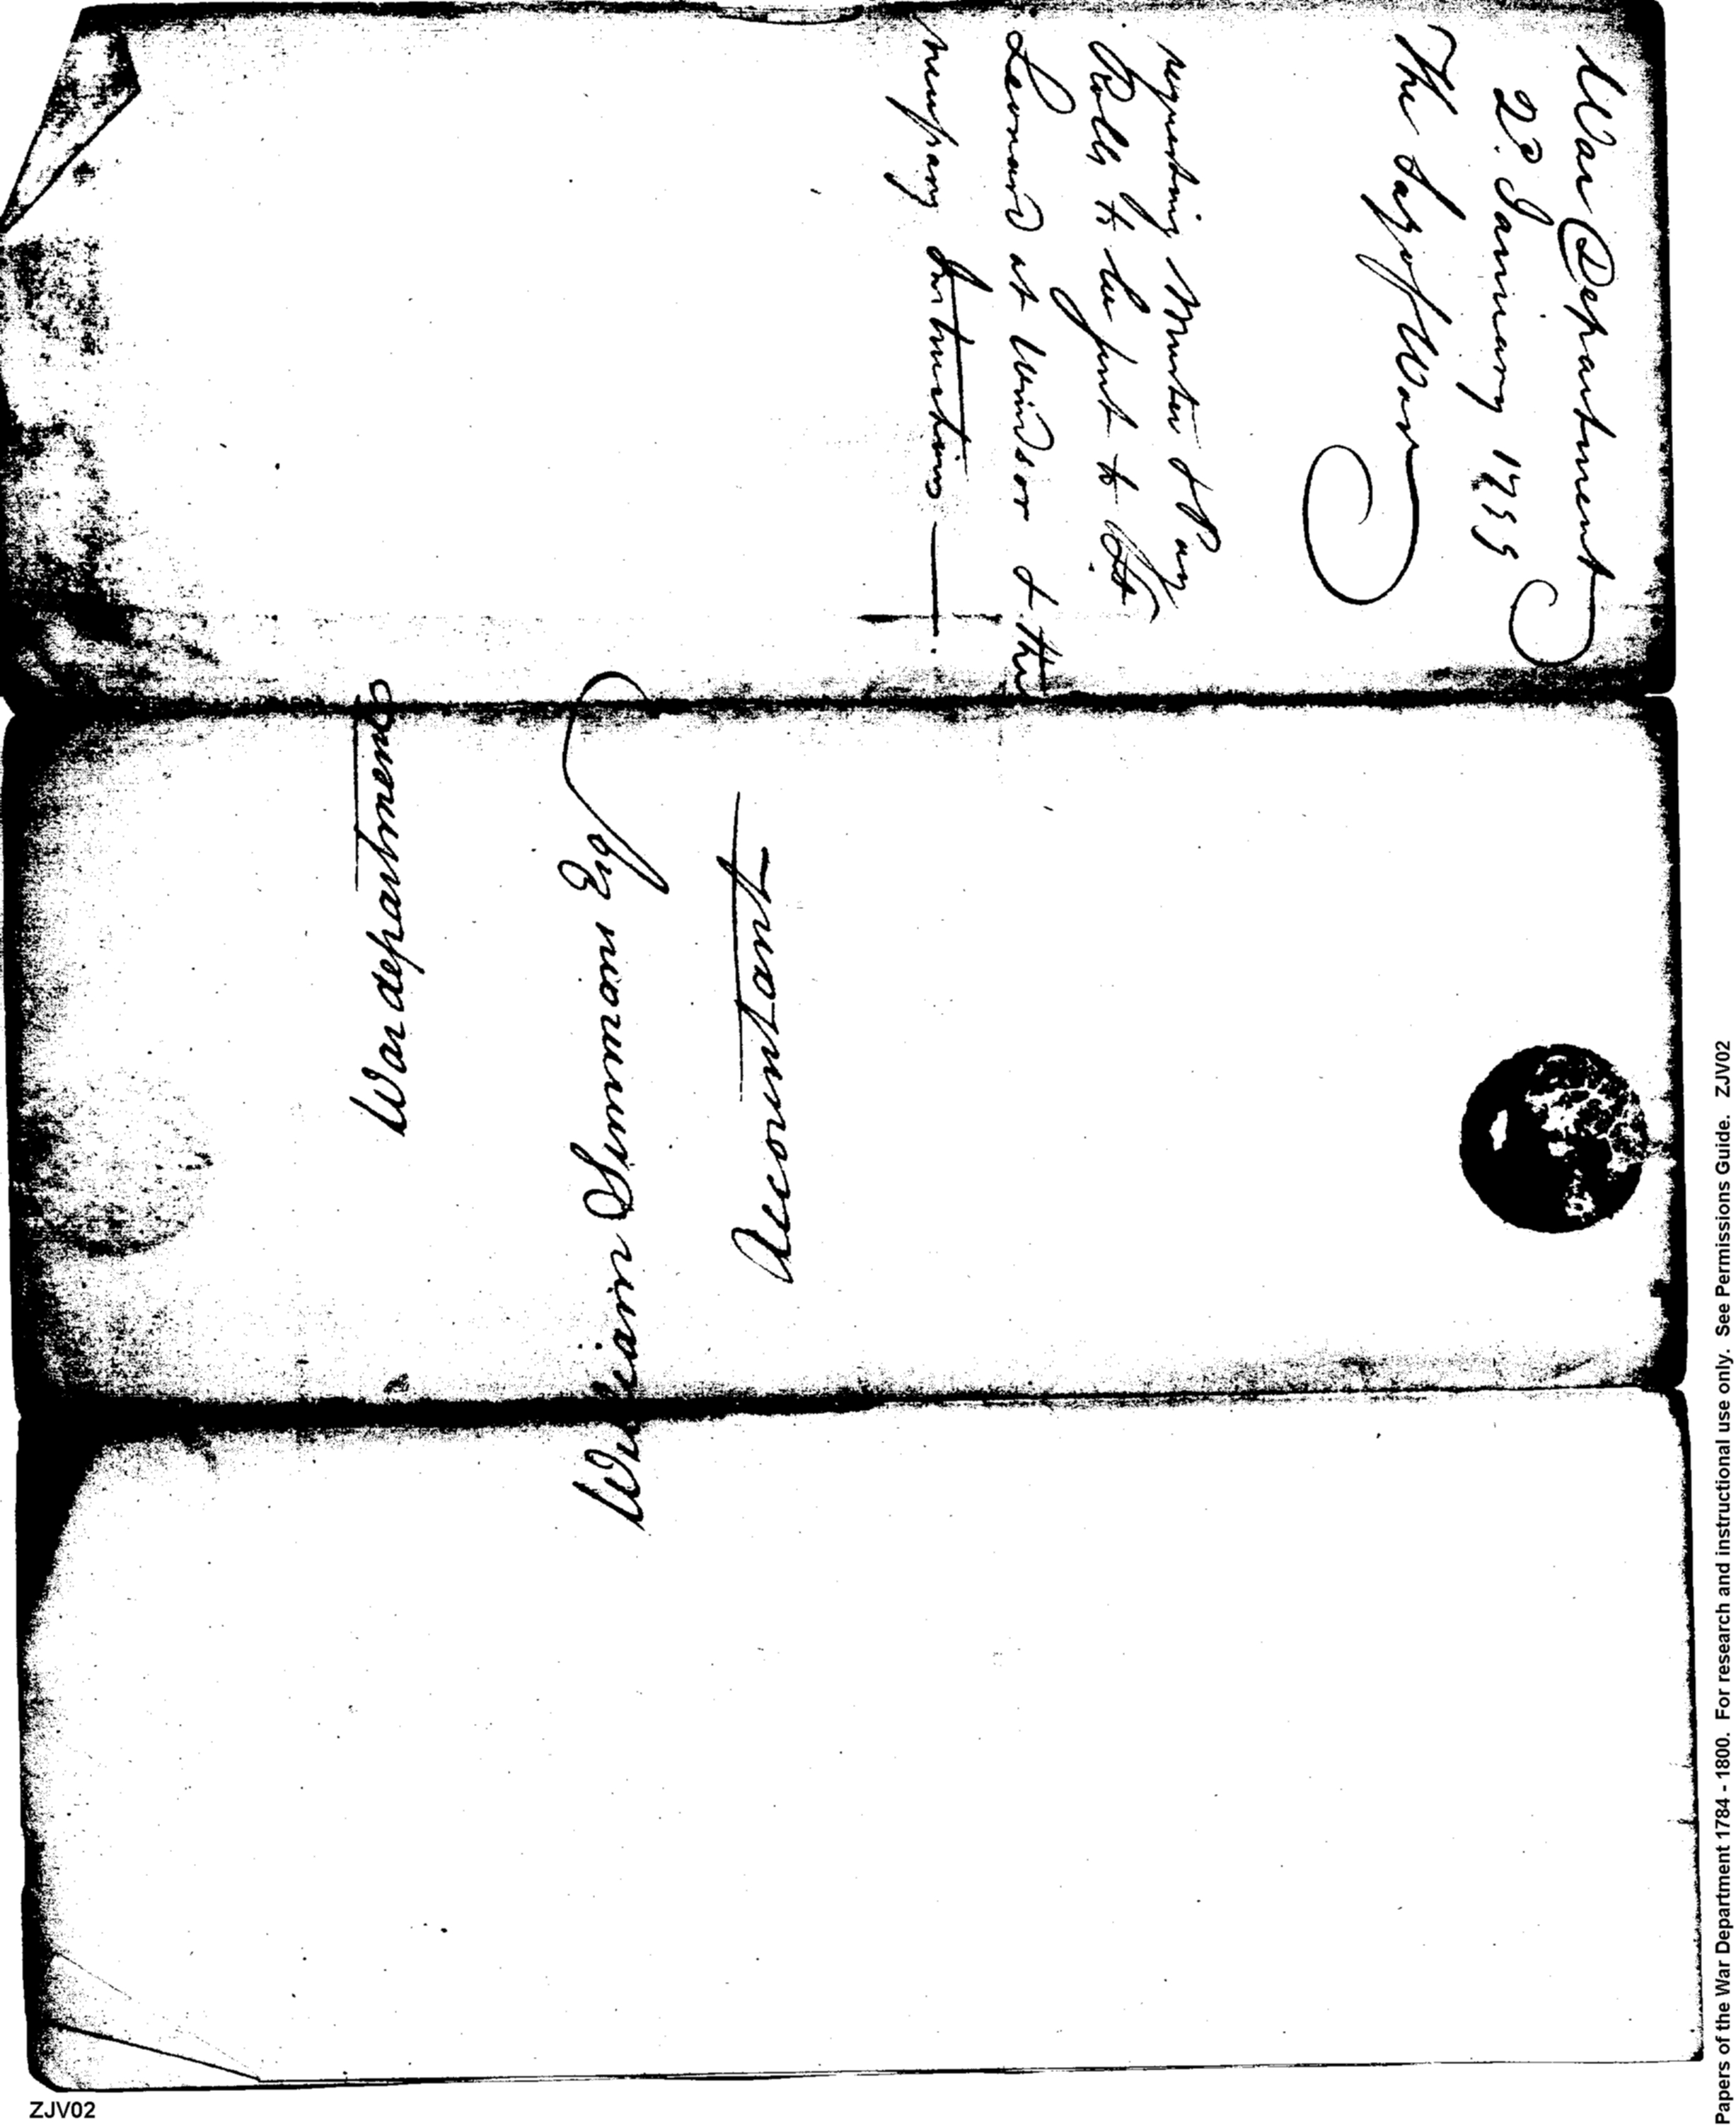 War Department
2d. January 1799
The Secy of War
requesting Muster & Pay
Rolls to be sent to Lt.
Leonard at Windsor & the
necessary Instructions
William Simmons Esqr
Accountant
War department
Papers of the War Department 1784 - 1800. For research and instructional use only. See Permissions Guide. ZJV02
ZJV02